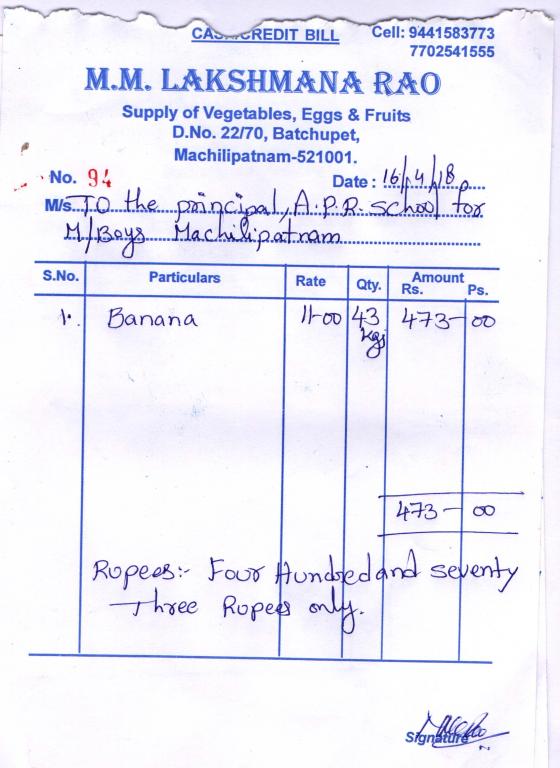 CASH/CREDIT BILL Cell: 9441583773
7702541555
M.M. LAKSHMANA RAO
Supply of Vegetables, Eggs & Fruits
D.No. 22/70, Batchupet,
Machilipatnam-521001.
No. 94 Date : 16/4/18
M/s. TO the principal, A.P.R. School for
M/Boys Machilipatnam
S.No. Particulars Rate Qty. Amount
Rs. Ps.
1. Banana 11-00 43 473-00
kgs
473-00
Rupees:- Four Hundred and seventy
Three Rupees only.
Signature